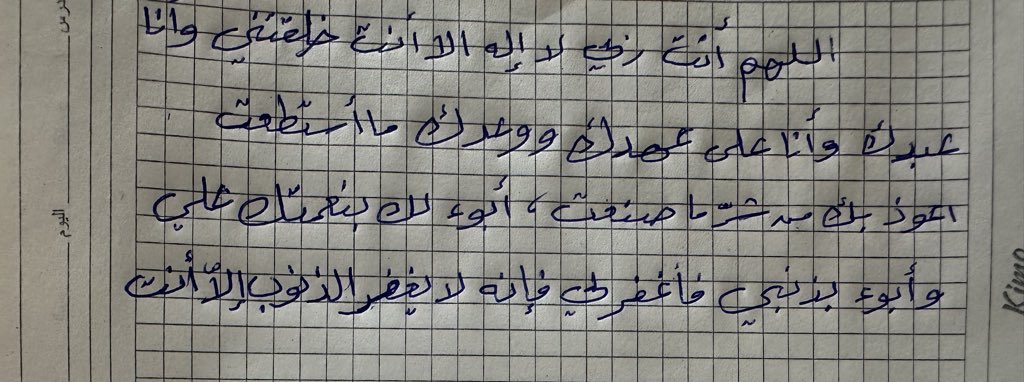 اللهم أنت ربي لا إله الا أنت خلقتني وانا
عبدك وأنا على عهدك ووعدك ما أستطعت
اعوذ بك من شر ما صنعت، أبوء لك بنعمتك علي
وأبوء بذنبي فأغفر لي فإنه لا يغفر الذنوب إلّا أنت
اليوم
Kimo